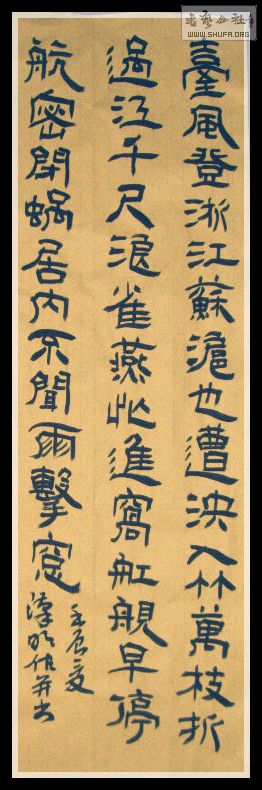 臺風登浙江蘇滬也遭泱入竹萬枝折
過江千尺浪雀燕忙進窩舡舰早停
航密閉蝸居内不聞雨擊窓
壬辰夏
漢明作并书
書藝公社
WWW.SHUFA.ORG